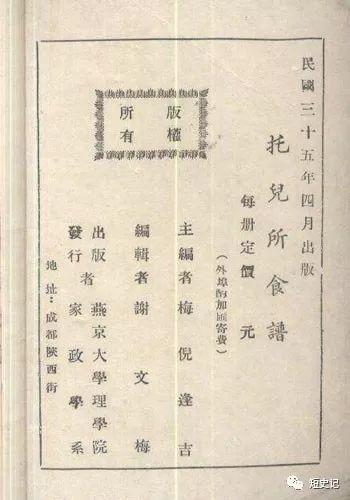 民國三十五年四月出版
托兒所食譜
每册定價　元
（外埠酌加匯寄費）
版權
所有
主編者梅倪逢吉
編輯者謝文梅
出版者
發行
燕京大學理學院
家政學系
地址：成都陝西街
短史记